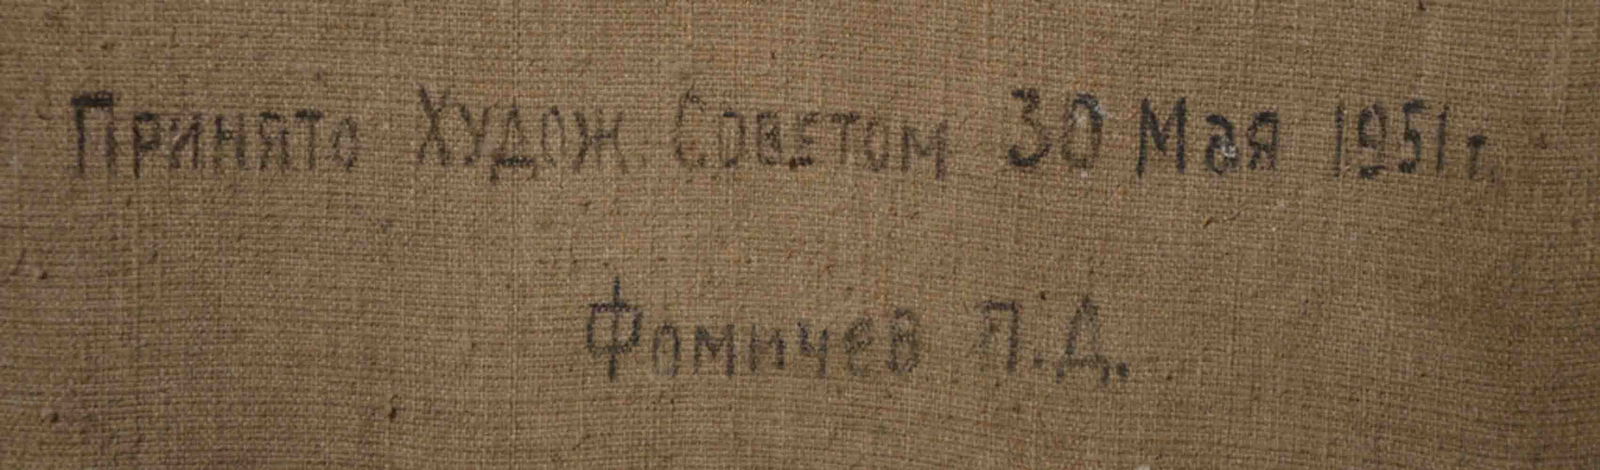 Принято Худож. Советом 30 Мая 1951 г.
Фомичев П.Д.